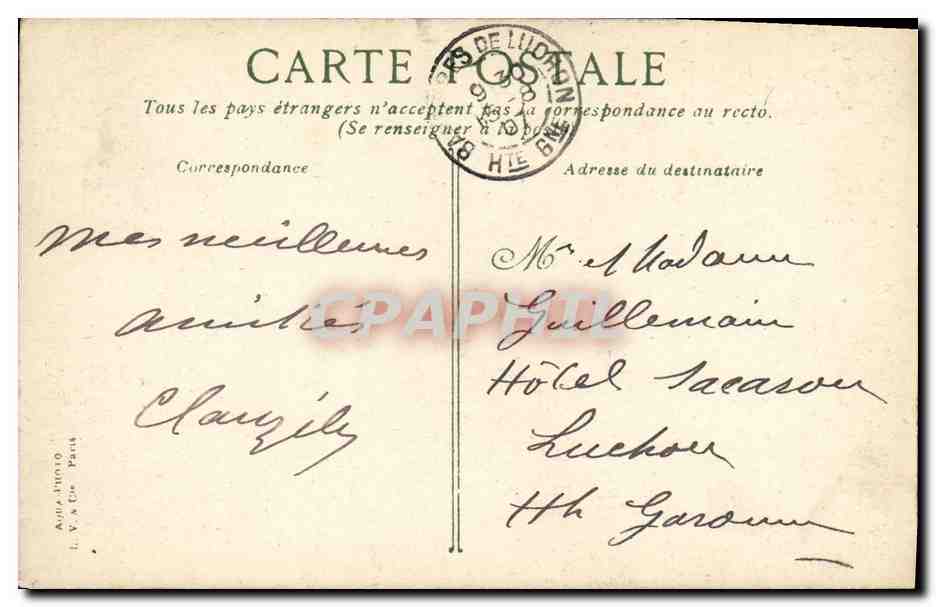 CARTE POSTALE
Tous les pays étrangers n'acceptent pas la correspondance au recto.
(Se renseigner à la poste)
BAGNÈRES DE LUCHON
Hte GNE
Correspondance
Adresse du destinataire
Mes meilleures
amitiés
Mr et Madame
Guillemain
Hôtel Sacaron
Luchon
Hte Garonne
CPAPHIL
AQUA-PHOTO
L. V. & Cie Paris